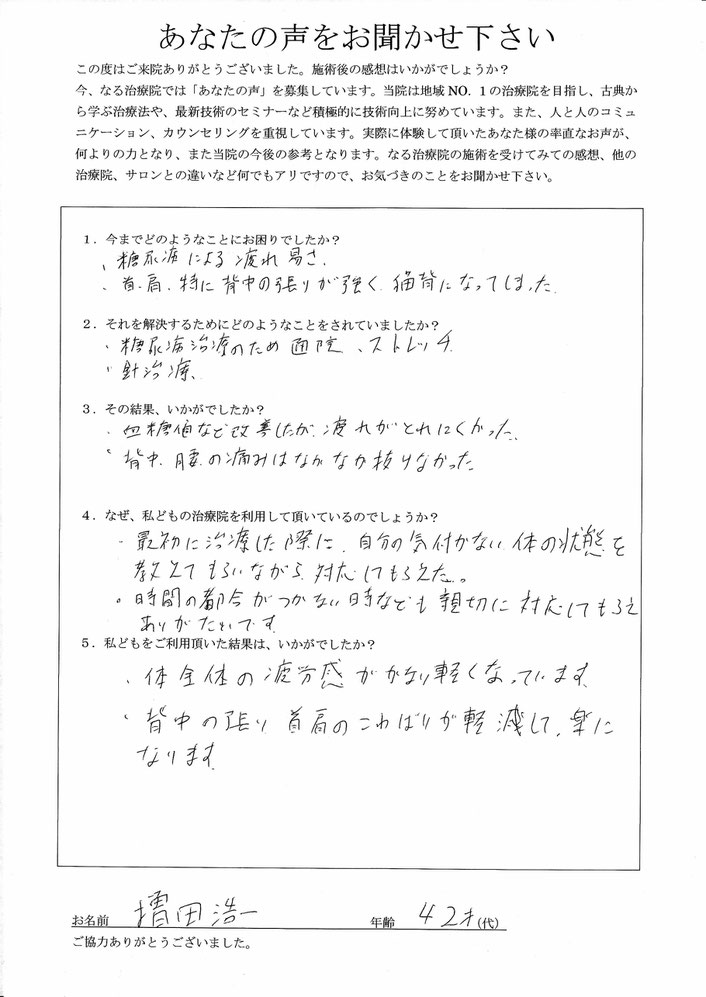 あなたの声をお聞かせ下さい
この度はご来院ありがとうございました。施術後の感想はいかがでしょうか？
今、なる治療院では「あなたの声」を募集しています。当院は地域NO．1の治療院を目指し、古典か
ら学ぶ治療法や、最新技術のセミナーなど積極的に技術向上に努めています。また、人と人のコミュ
ニケーション、カウンセリングを重視しています。実際に体験して頂いたあなた様の率直なお声が、
何よりの力となり、また当院の今後の参考となります。なる治療院の施術を受けてみての感想、他の
治療院、サロンとの違いなど何でもアリですので、お気づきのことをお聞かせ下さい。
１．今までどのようなことにお困りでしたか？
、糖尿病による疲れ易さ、
・首、肩、特に背中の張りが強く、猫背になってしまった
２．それを解決するためにどのようなことをされていましたか？
・糖尿病治療のため通院、ストレッチ
・針治療、
３．その結果、いかがでしたか？
・血糖値など改善したが、疲れがとれにくかった、
・背中、腰の痛みはなかなか抜けなかった
４．なぜ、私どもの治療院を利用して頂いているのでしょうか？
・最初に治療した際に、自分の気付かない体の状態を
教えてもらいながら対応してもらえた。
・時間の都合がつかない時なども親切に対応してもらえ
ありがたいです
５．私どもをご利用頂いた結果は、いかがでしたか？
・体全体の疲労感がかなり軽くなっています
・背中の張り、首肩のこわばりが軽減して、楽に
なります
お名前 増田浩一 年齢 42才(代)
ご協力ありがとうございました。